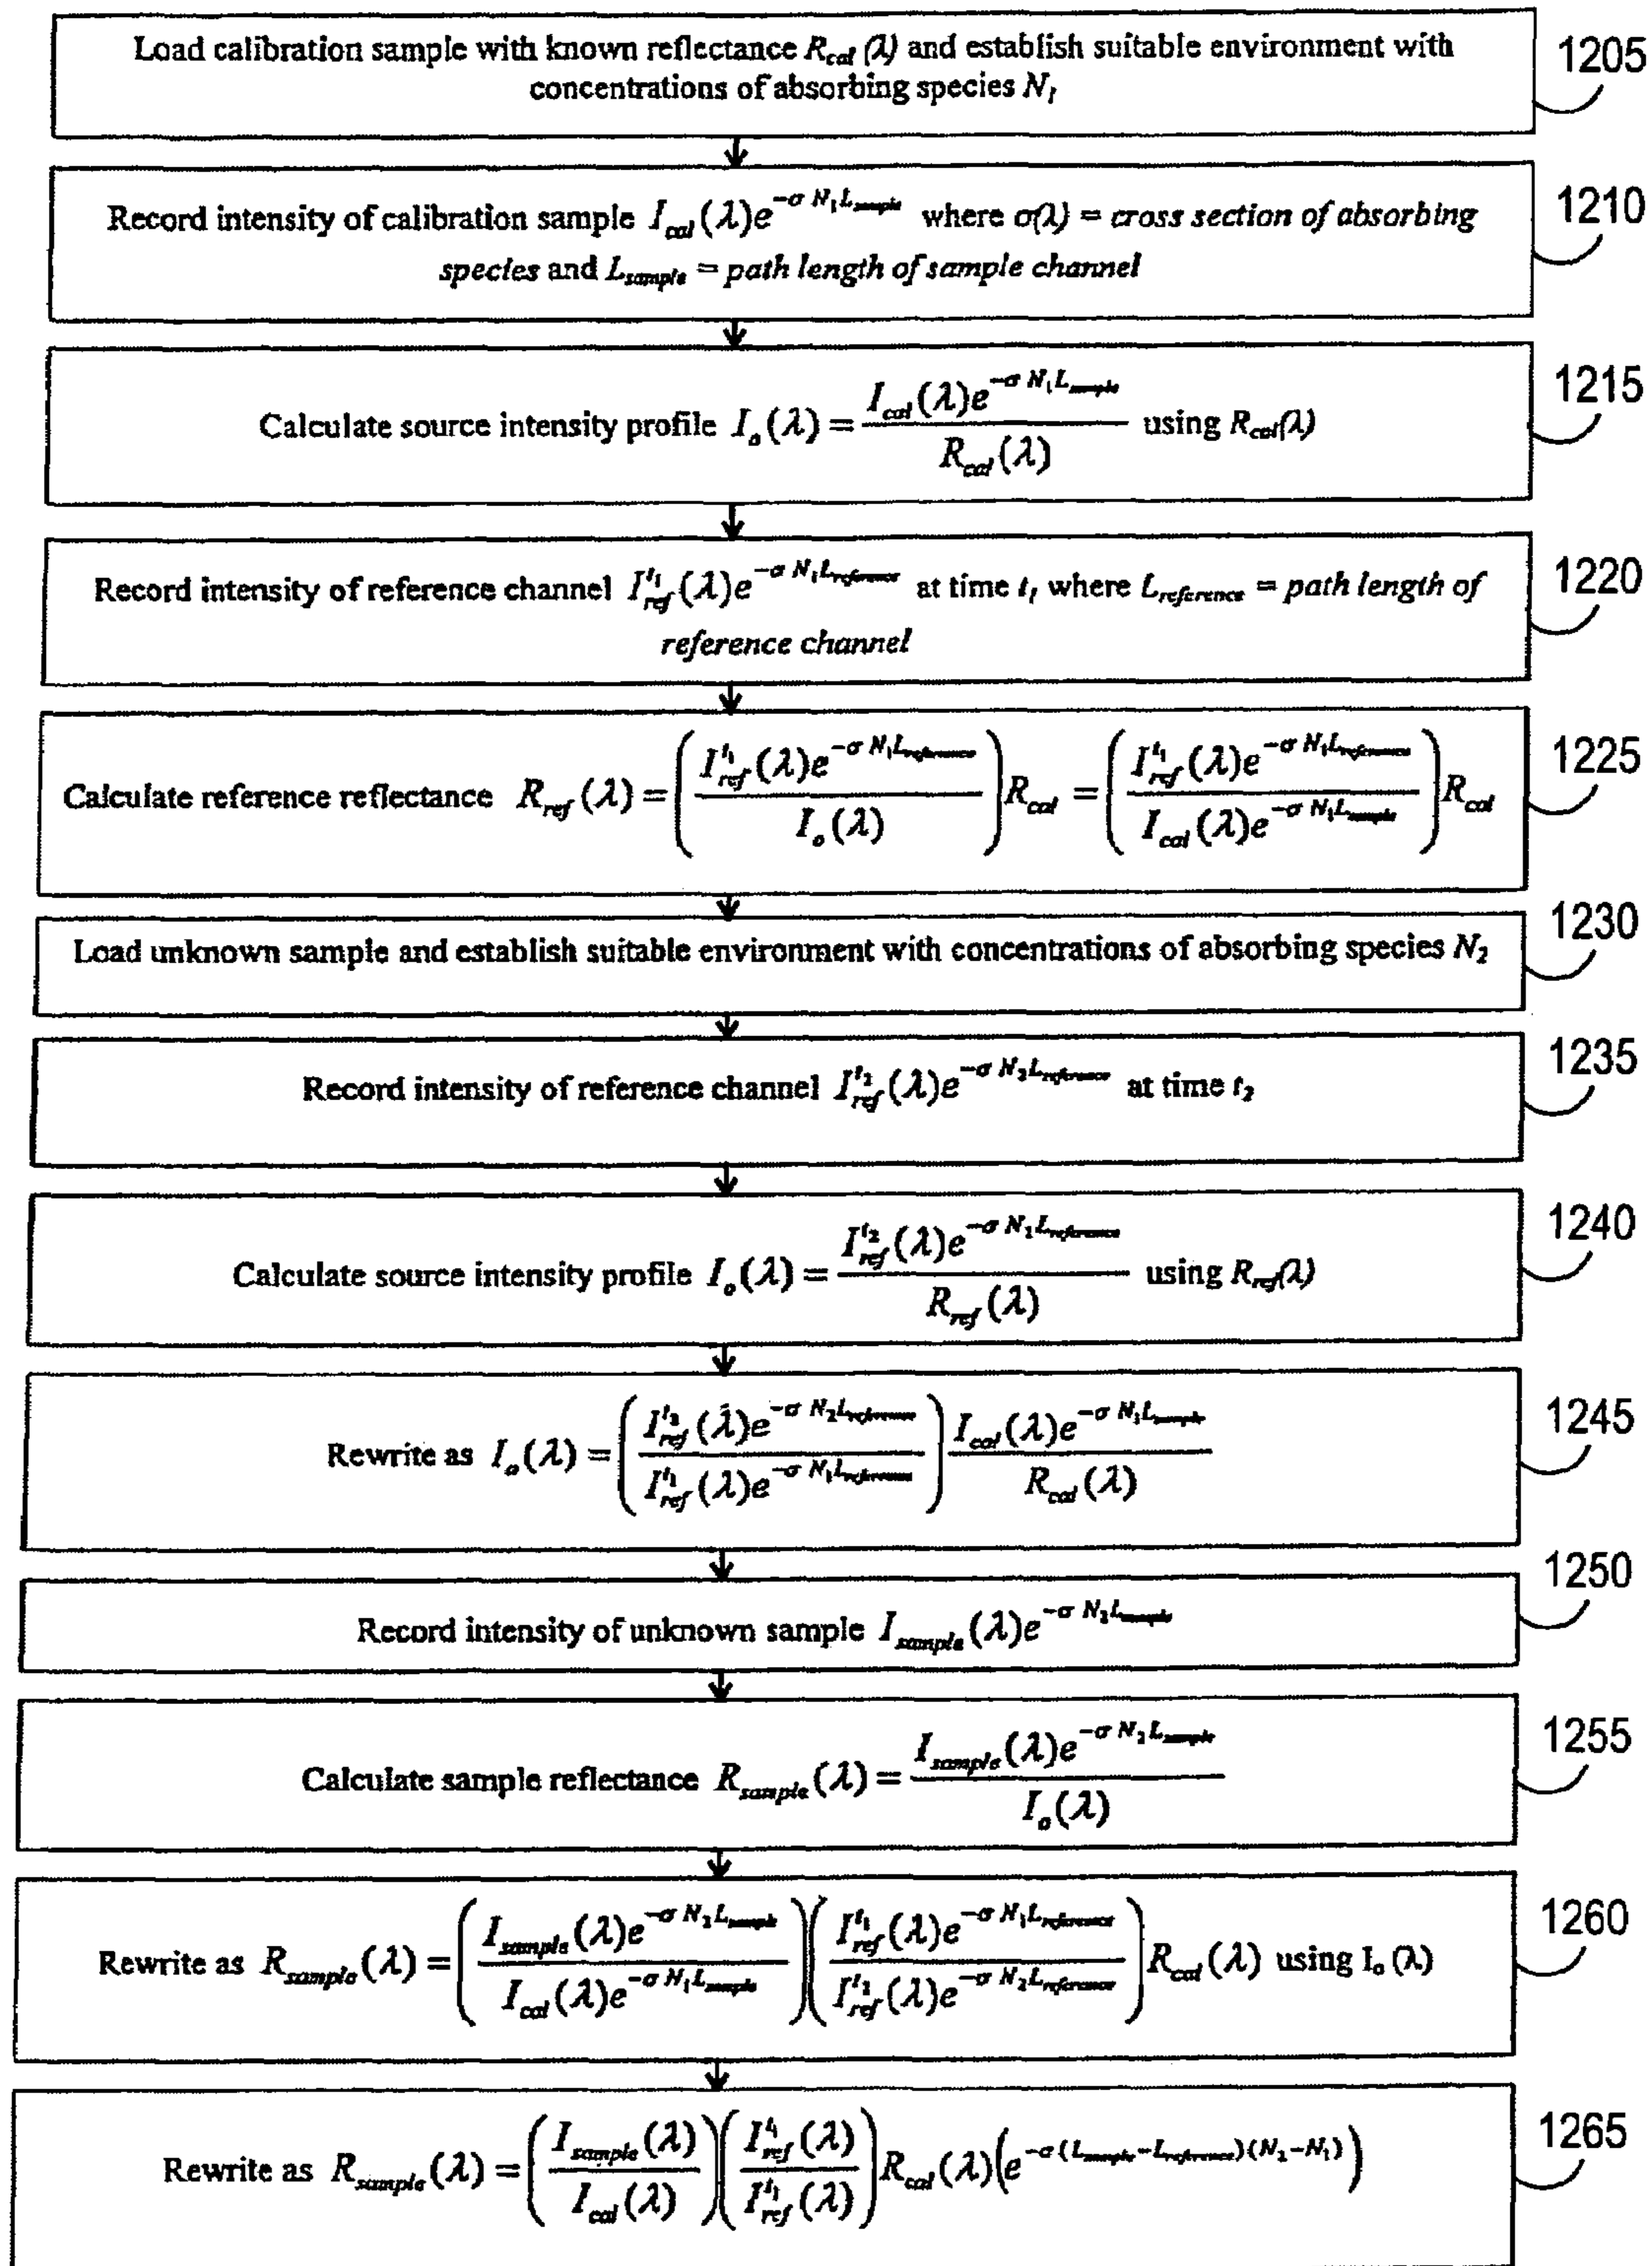 Load calibration sample with known reflectance R_cal (λ) and establish suitable environment with
concentrations of absorbing species N_1
1205
Record intensity of calibration sample I_cal(λ)e^{-σ N_1 L_sample} where σ(λ) = cross section of absorbing
species and L_sample = path length of sample channel
1210
Calculate source intensity profile I_o(λ) = \frac{I_cal(λ)e^{-σ N_1 L_sample}}{R_cal(λ)} using R_cal(λ)
1215
Record intensity of reference channel I_ref^{t_1}(λ)e^{-σ N_1 L_reference} at time t_1 where L_reference = path length of
reference channel
1220
Calculate reference reflectance R_ref(λ) = (\frac{I_ref^{t_1}(λ)e^{-σ N_1 L_reference}}{I_o(λ)}) R_cal = (\frac{I_ref^{t_1}(λ)e^{-σ N_1 L_reference}}{I_cal(λ)e^{-σ N_1 L_sample}}) R_cal
1225
Load unknown sample and establish suitable environment with concentrations of absorbing species N_2
1230
Record intensity of reference channel I_ref^{t_2}(λ)e^{-σ N_2 L_reference} at time t_2
1235
Calculate source intensity profile I_o(λ) = \frac{I_ref^{t_2}(λ)e^{-σ N_2 L_reference}}{R_ref(λ)} using R_ref(λ)
1240
Rewrite as I_o(λ) = (\frac{I_ref^{t_2}(λ)e^{-σ N_2 L_reference}}{I_ref^{t_1}(λ)e^{-σ N_1 L_reference}}) \frac{I_cal(λ)e^{-σ N_1 L_sample}}{R_cal(λ)}
1245
Record intensity of unknown sample I_sample(λ)e^{-σ N_2 L_sample}
1250
Calculate sample reflectance R_sample(λ) = \frac{I_sample(λ)e^{-σ N_2 L_sample}}{I_o(λ)}
1255
Rewrite as R_sample(λ) = (\frac{I_sample(λ)e^{-σ N_2 L_sample}}{I_cal(λ)e^{-σ N_1 L_sample}})(\frac{I_ref^{t_1}(λ)e^{-σ N_1 L_reference}}{I_ref^{t_2}(λ)e^{-σ N_2 L_reference}}) R_cal(λ) using I_o (λ)
1260
Rewrite as R_sample(λ) = (\frac{I_sample(λ)}{I_cal(λ)})(\frac{I_ref^{t_1}(λ)}{I_ref^{t_1}(λ)}) R_cal(λ)(e^{-σ (L_sample-L_reference)(N_2-N_1)})
1265